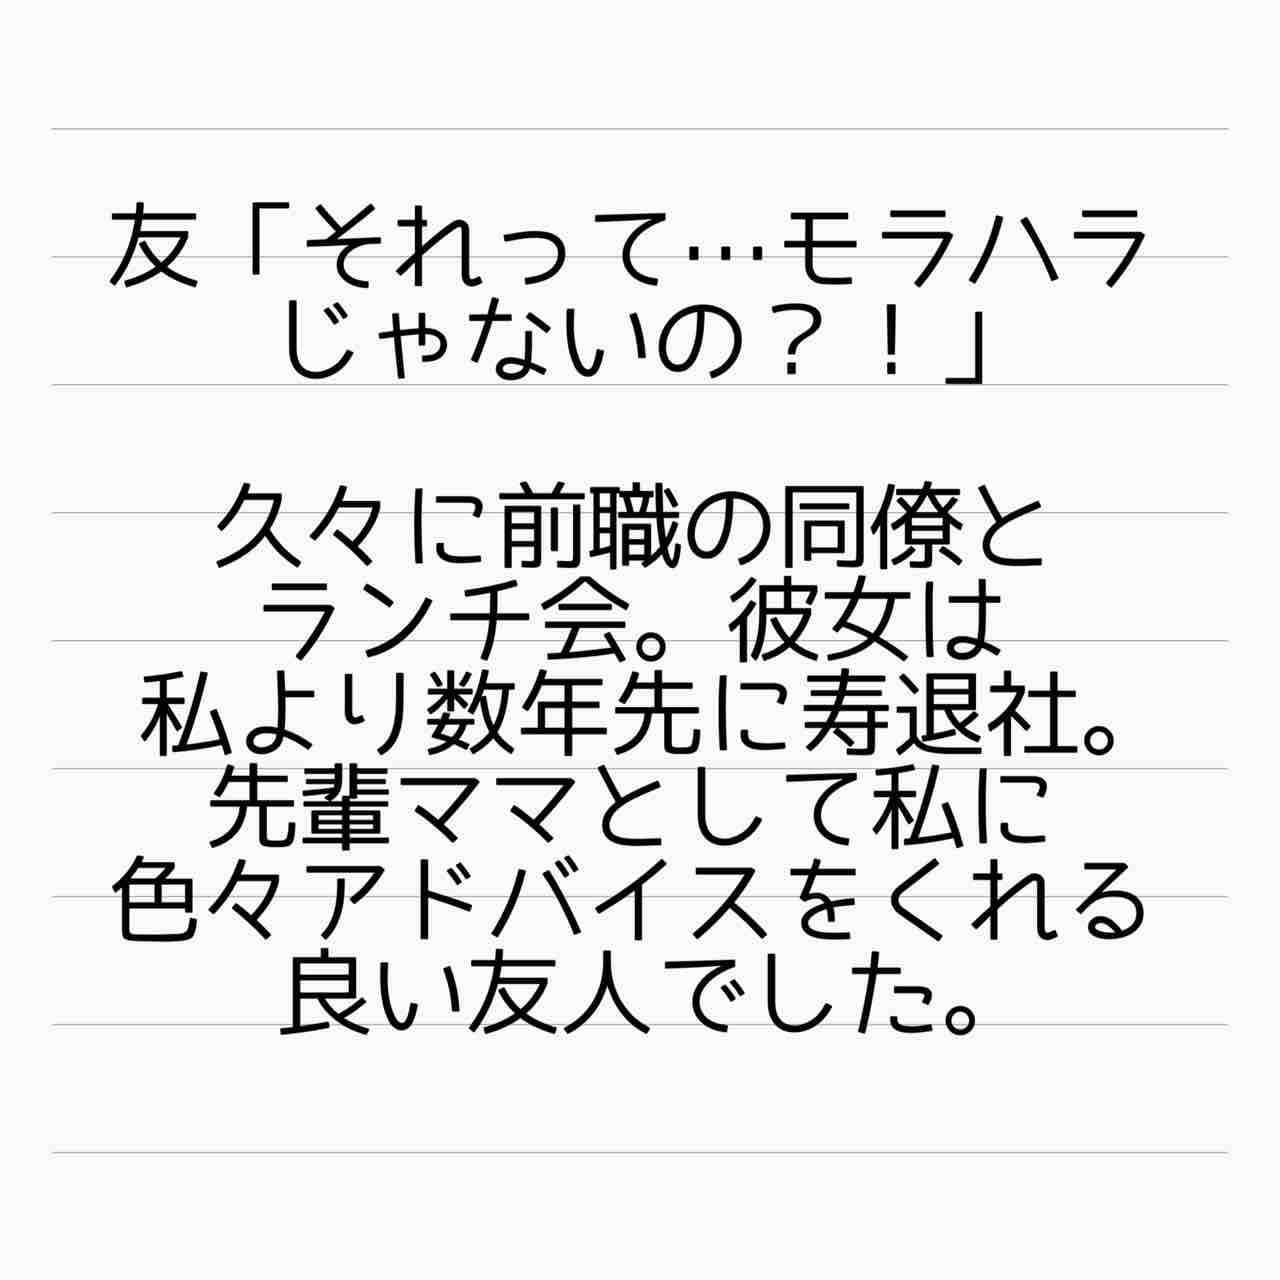 友「それって…モラハラ
じゃないの？！」
久々に前職の同僚と
ランチ会。彼女は
私より数年先に寿退社。
先輩ママとして私に
色々アドバイスをくれる
良い友人でした。